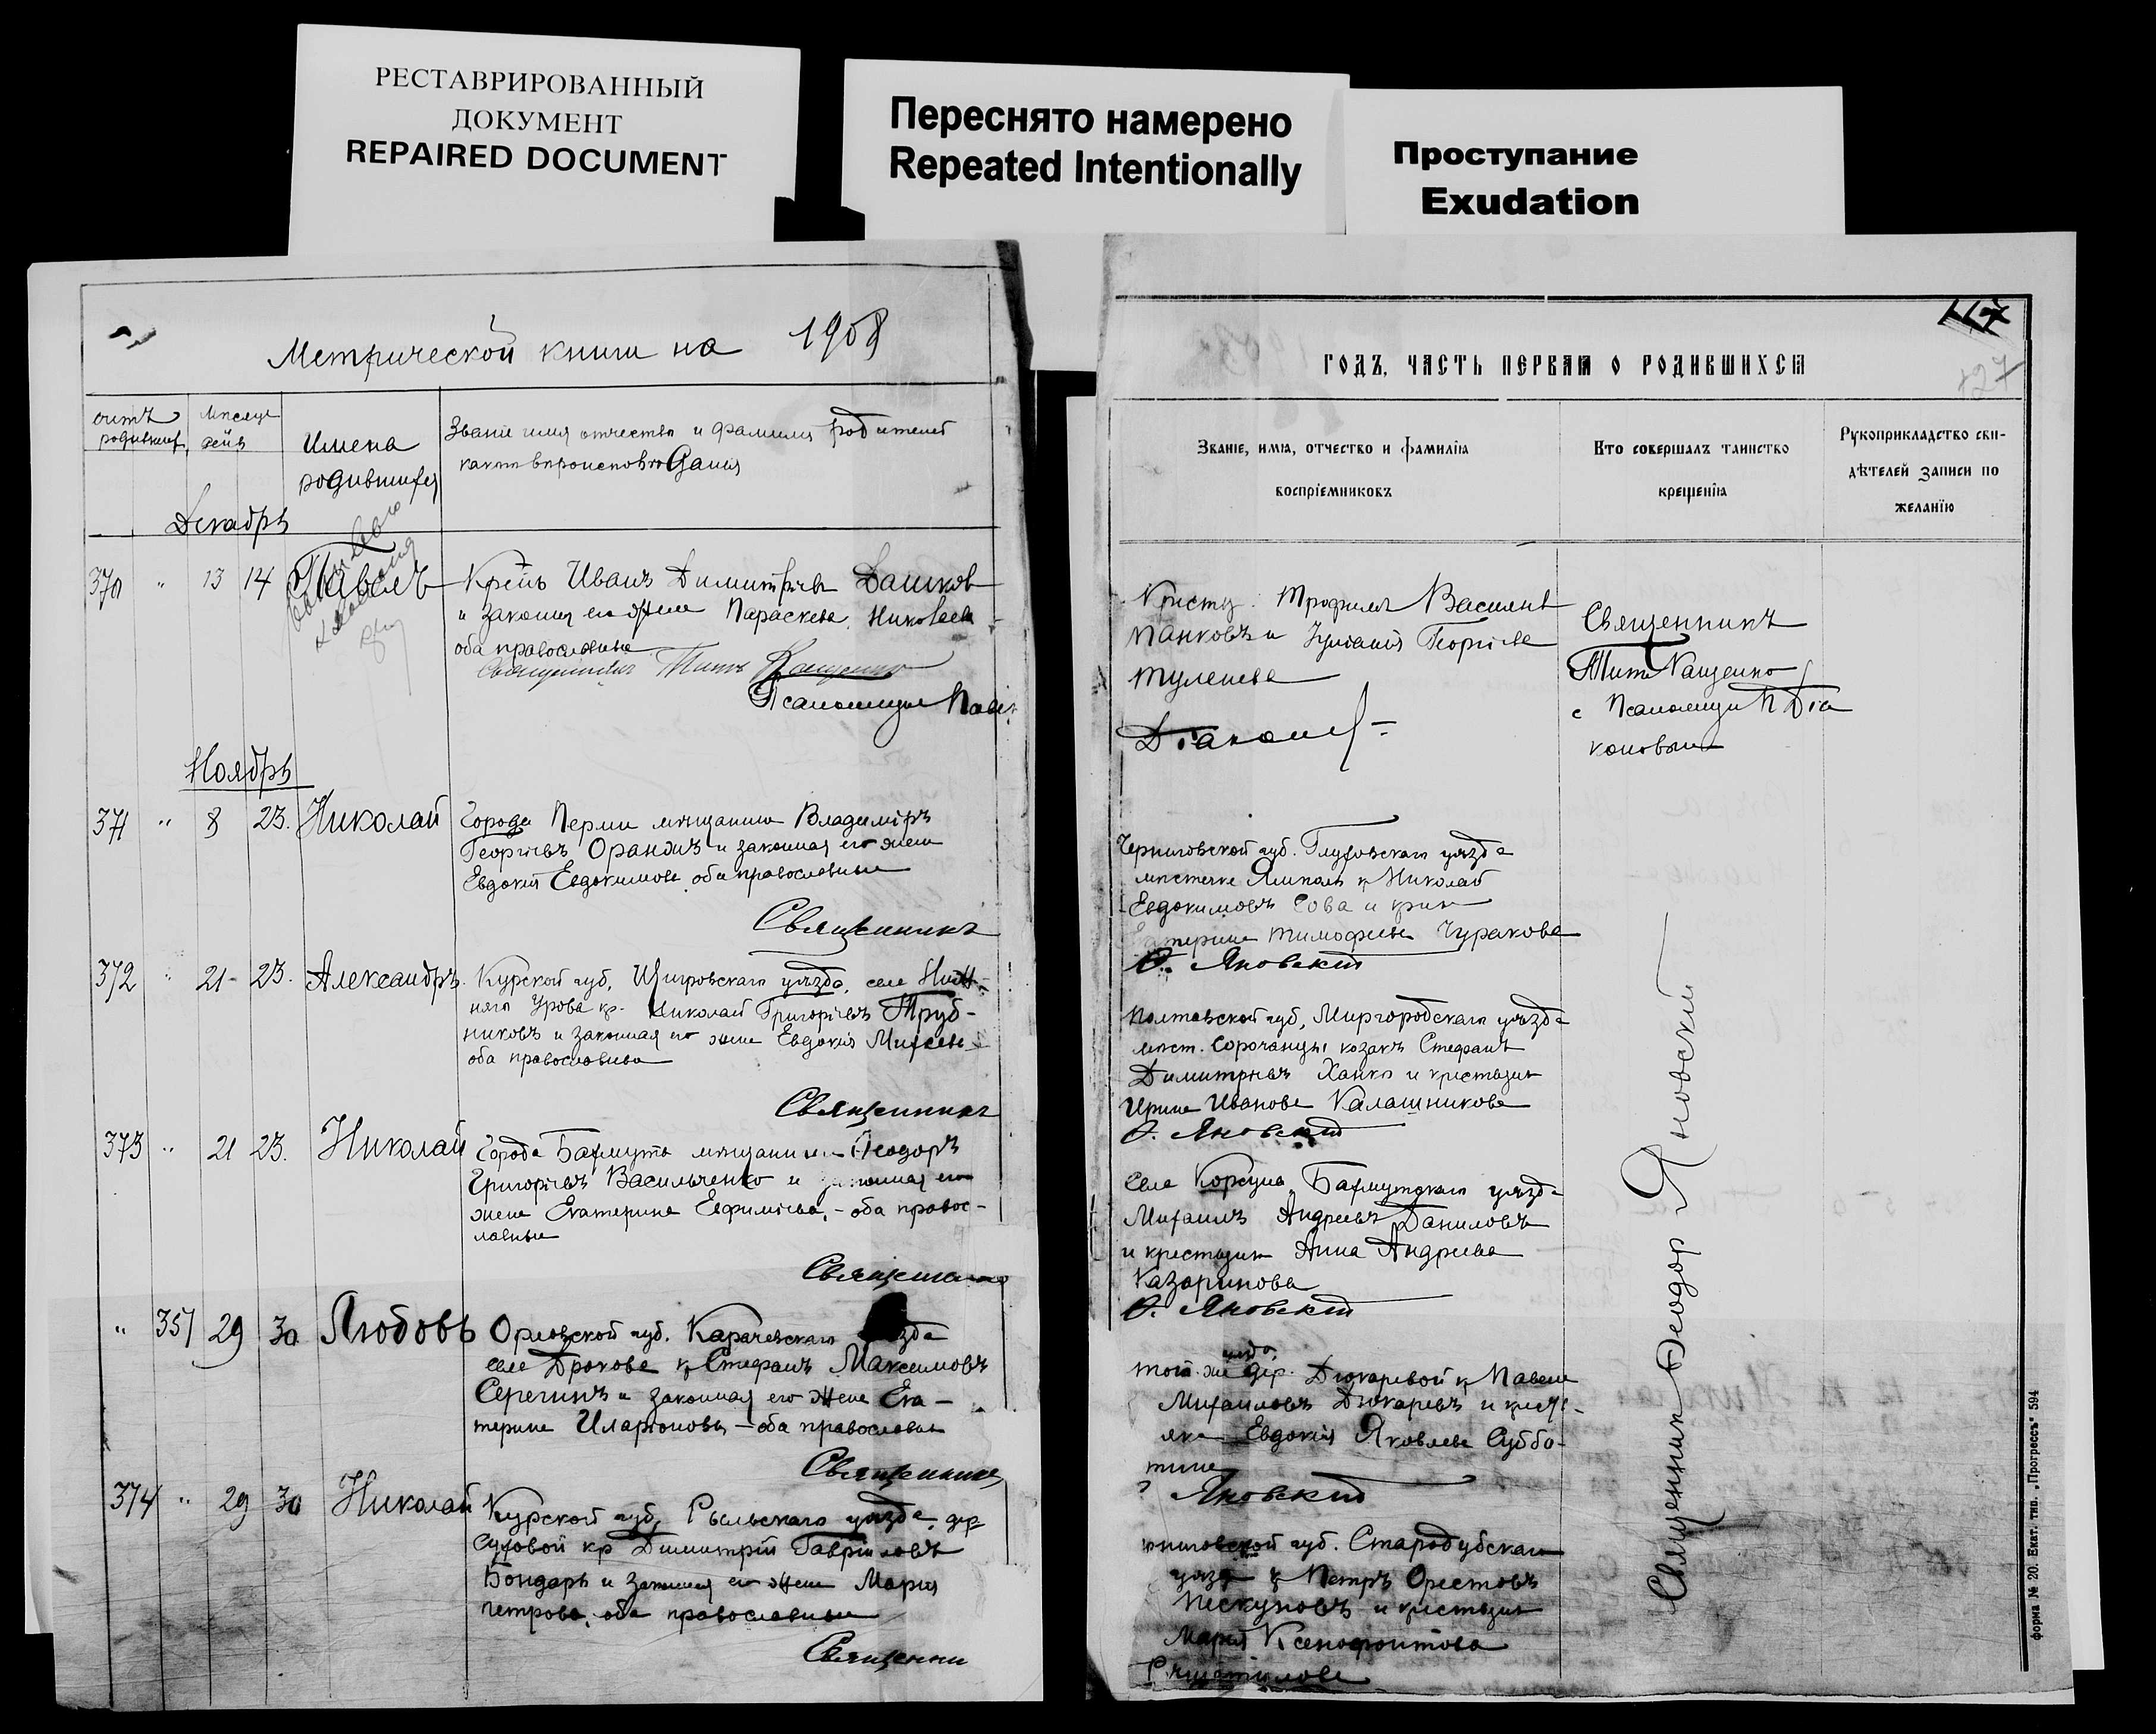 РЕСТАВРИРОВАННЫЙ
ДОКУМЕНТ
REPAIRED DOCUMENT
Переснято намерено
Repeated Intentionally
Проступание
Exudation
Метрической книги на 1908
счетъ
родивших
месяцъ
дейъ
Имена
родившихся
Званіе имя отчество и фамилія родителей
Декабрь
370 " 13 14 Павелъ
Кр-нъ Иванъ Димитріевъ Дашков
и законная его жена Параскева Николаева
оба православные
Священникъ Титъ Кащенко
Псаломщик Павел
Ноябрь
371 " 8 23. Николай
Города Перми мещанинъ Владиміръ
Георгіевъ Оранжъ и законная его жена
Евдокія Евдокимова оба православные
Священникъ
372 " 21 - 23. Александръ
Курской губ, Щигровскаго уезда, села Ниж-
няго кр. Николай Григоріевъ Труб-
никовъ и законная его жена Евдокія Михеева
оба православные
Священникъ
373 " 21 23. Николай
Города Бахмута мещанинъ Ѳеодоръ
Григоріевъ Васильченко и законная его
жена Екатерина Евфиміева, - оба правос-
лавные
Священникъ
" 351 29 30 Любовь
Орловской губ. Карачевскаго уезда
села Дроново кр Стефанъ Максимовъ
Серегинъ и законная его жена Ека-
терина Иларіонова - оба православные
Священникъ
374 " 29 30 Николай
Курской губ, Рыльскаго уезда, дер
Суховой кр Димитрій Гавріиловъ
Бондарь и законная его жена Марія
Петрова, оба православные
Священни
117
127
ГОДЪ, ЧАСТЬ ПЕРВАЯ О РОДИВШИХСЯ
Званіе, имя, отчество и фамилія
воспріемниковъ
Кто совершалъ таинство
крещенія
Рукоприкладство сви-
дѣтелей записи по
желанію
Трофимъ Василіев
Панковъ и Іуліанія Георгіева
Туленева
Діаконов
Священникъ
Титъ Кащенко
с Псаломщи П Діа
коновым
Черниговской губ. Глуховскаго уезда
местечка Ямполь кр Николай
Евдокимовъ Сова и крин
Екатерина Тимофеева Чуракова
Ѳ. Яновскій
Полтавской губ, Миргородскаго уезда
мест. Сорочинцы козакъ Стефанъ
Димитріевъ Ханко и крестьянк
Ирина Иванова Калашникова
Ѳ. Яновскій
Села Корсуна Бахмутскаго уезда
Михаилъ Андреевъ Даниловъ
и крестьянк Анна Андреева
Казаринова
Ѳ. Яновскій
того же уезда дер. Дюкаревой кр Павелъ
Михаиловъ Дюкаревъ и крест-
янка Евдокія Яковлева Суббо-
тина
Яновскій
рниговской губ. Стародубскаго
уезда кр Петръ Орестовъ
Пескуновъ и крестьянк
Марія Ксенофонтова
Священник Ѳеодор Яновскій
форма № 20. Екат. тип. „Прогрессъ" 594